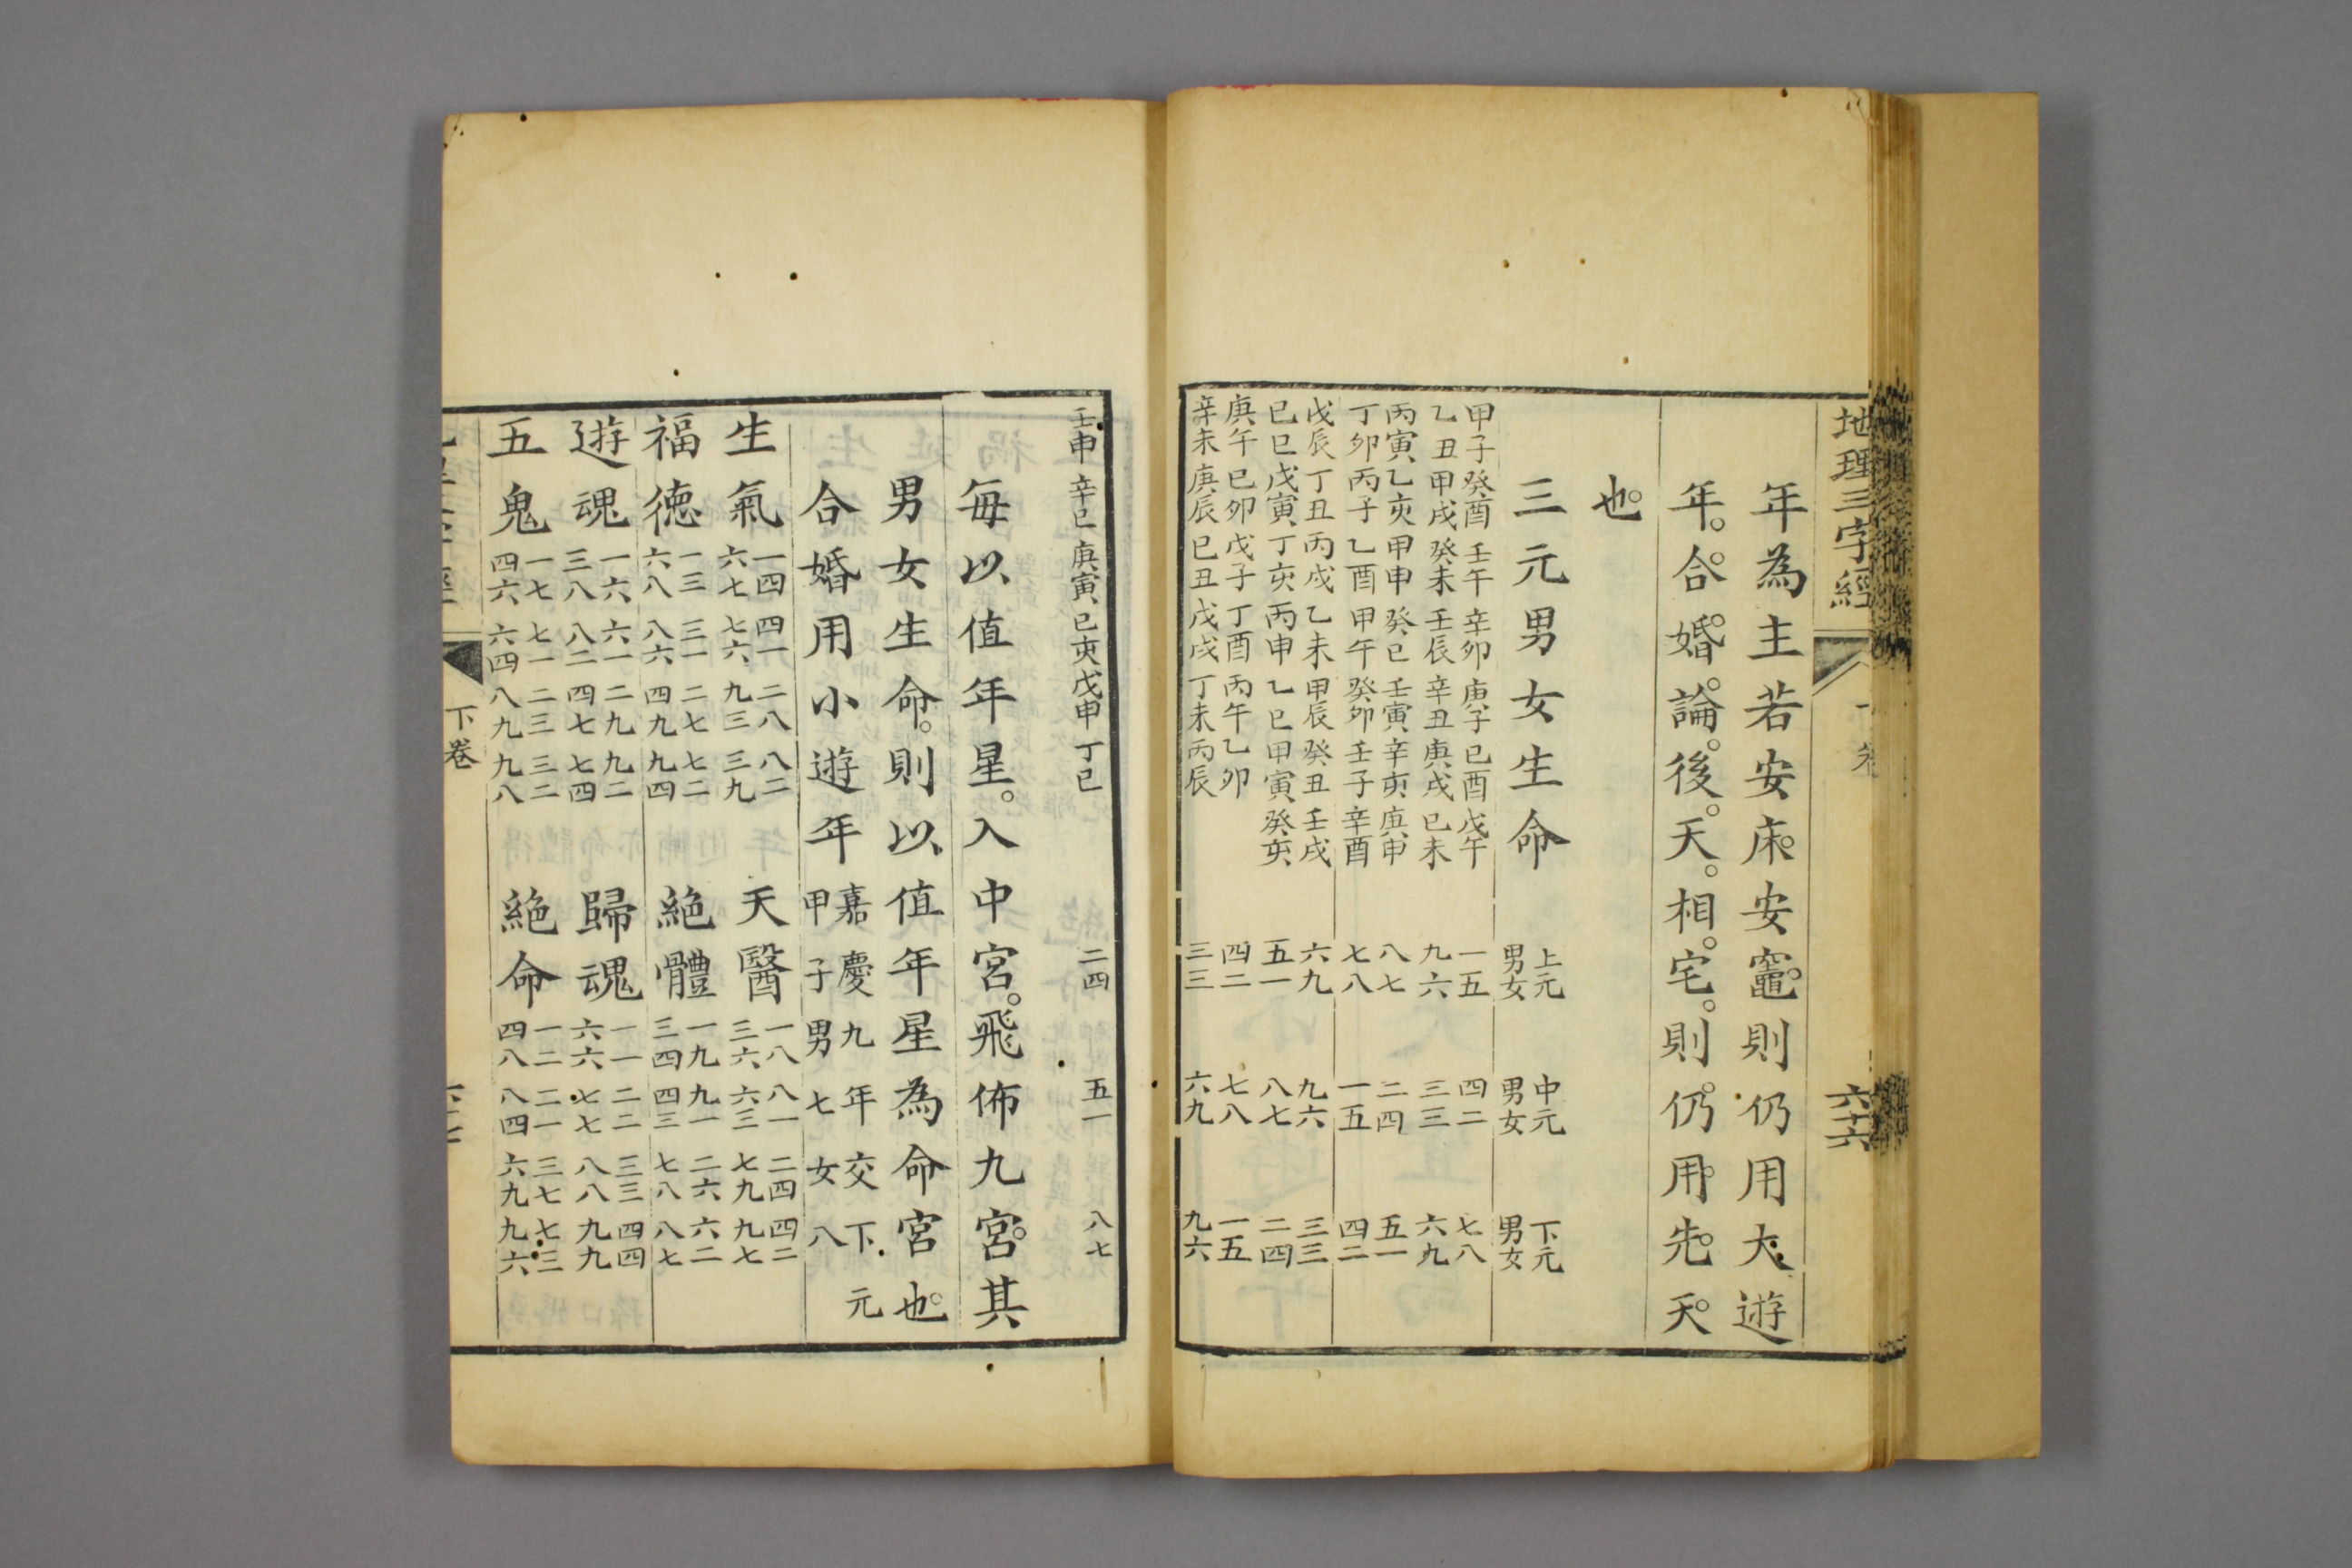 地理三字經
下卷
六十六
年為主若安床。安竈。則仍用大遊
年。合。婚。論。後。天。相。宅。則仍。用。先。天。
也。
三元男女生命
上元 中元 下元
男女 男女 男女
甲子癸酉壬午辛卯庚子己酉戊午 一五 四二 七八
乙丑甲戌癸未壬辰辛丑庚戌己未 九六 三三 六九
丙寅乙亥甲申癸巳壬寅辛亥庚申 八七 二四 五一
丁卯丙子乙酉甲午癸卯壬子辛酉 七八 一五 四二
戊辰丁丑丙戌乙未甲辰癸丑壬戌 六九 九六 三三
己巳戊寅丁亥丙申乙巳甲寅癸亥 五一 八七 二四
庚午己卯戊子丁酉丙午乙卯 四二 七八 一五
辛未庚辰己丑戊戌丁未丙辰 三三 六九 九六
壬申辛巳庚寅己亥戊申丁巳 二四 五一 八七
每以值年星。入中宮。飛佈九宮。其
男女生命。則以值年星為命宮也。
合婚用小遊年 嘉慶九年交下元
甲子男七女八
生氣 一四 四一 二八 八二 天醫 一八 八一 二四 四二
六七 七六 九三 三九 三六 六三 七九 九七
福德 一三 三一 二七 七二 絕體 一九 九一 二六 六二
六八 八六 四九 九四 三四 四三 七八 八七
遊魂 一六 六一 二九 九二 歸魂 一一 二二 三三 四四
三八 八二 四七 七四 六六 七七 八八 九九
五鬼 一七 七一 二三 三二 絕命 一二 二一 三七 七三
四六 六四 八九 九八 四八 八四 六九 九六
下卷